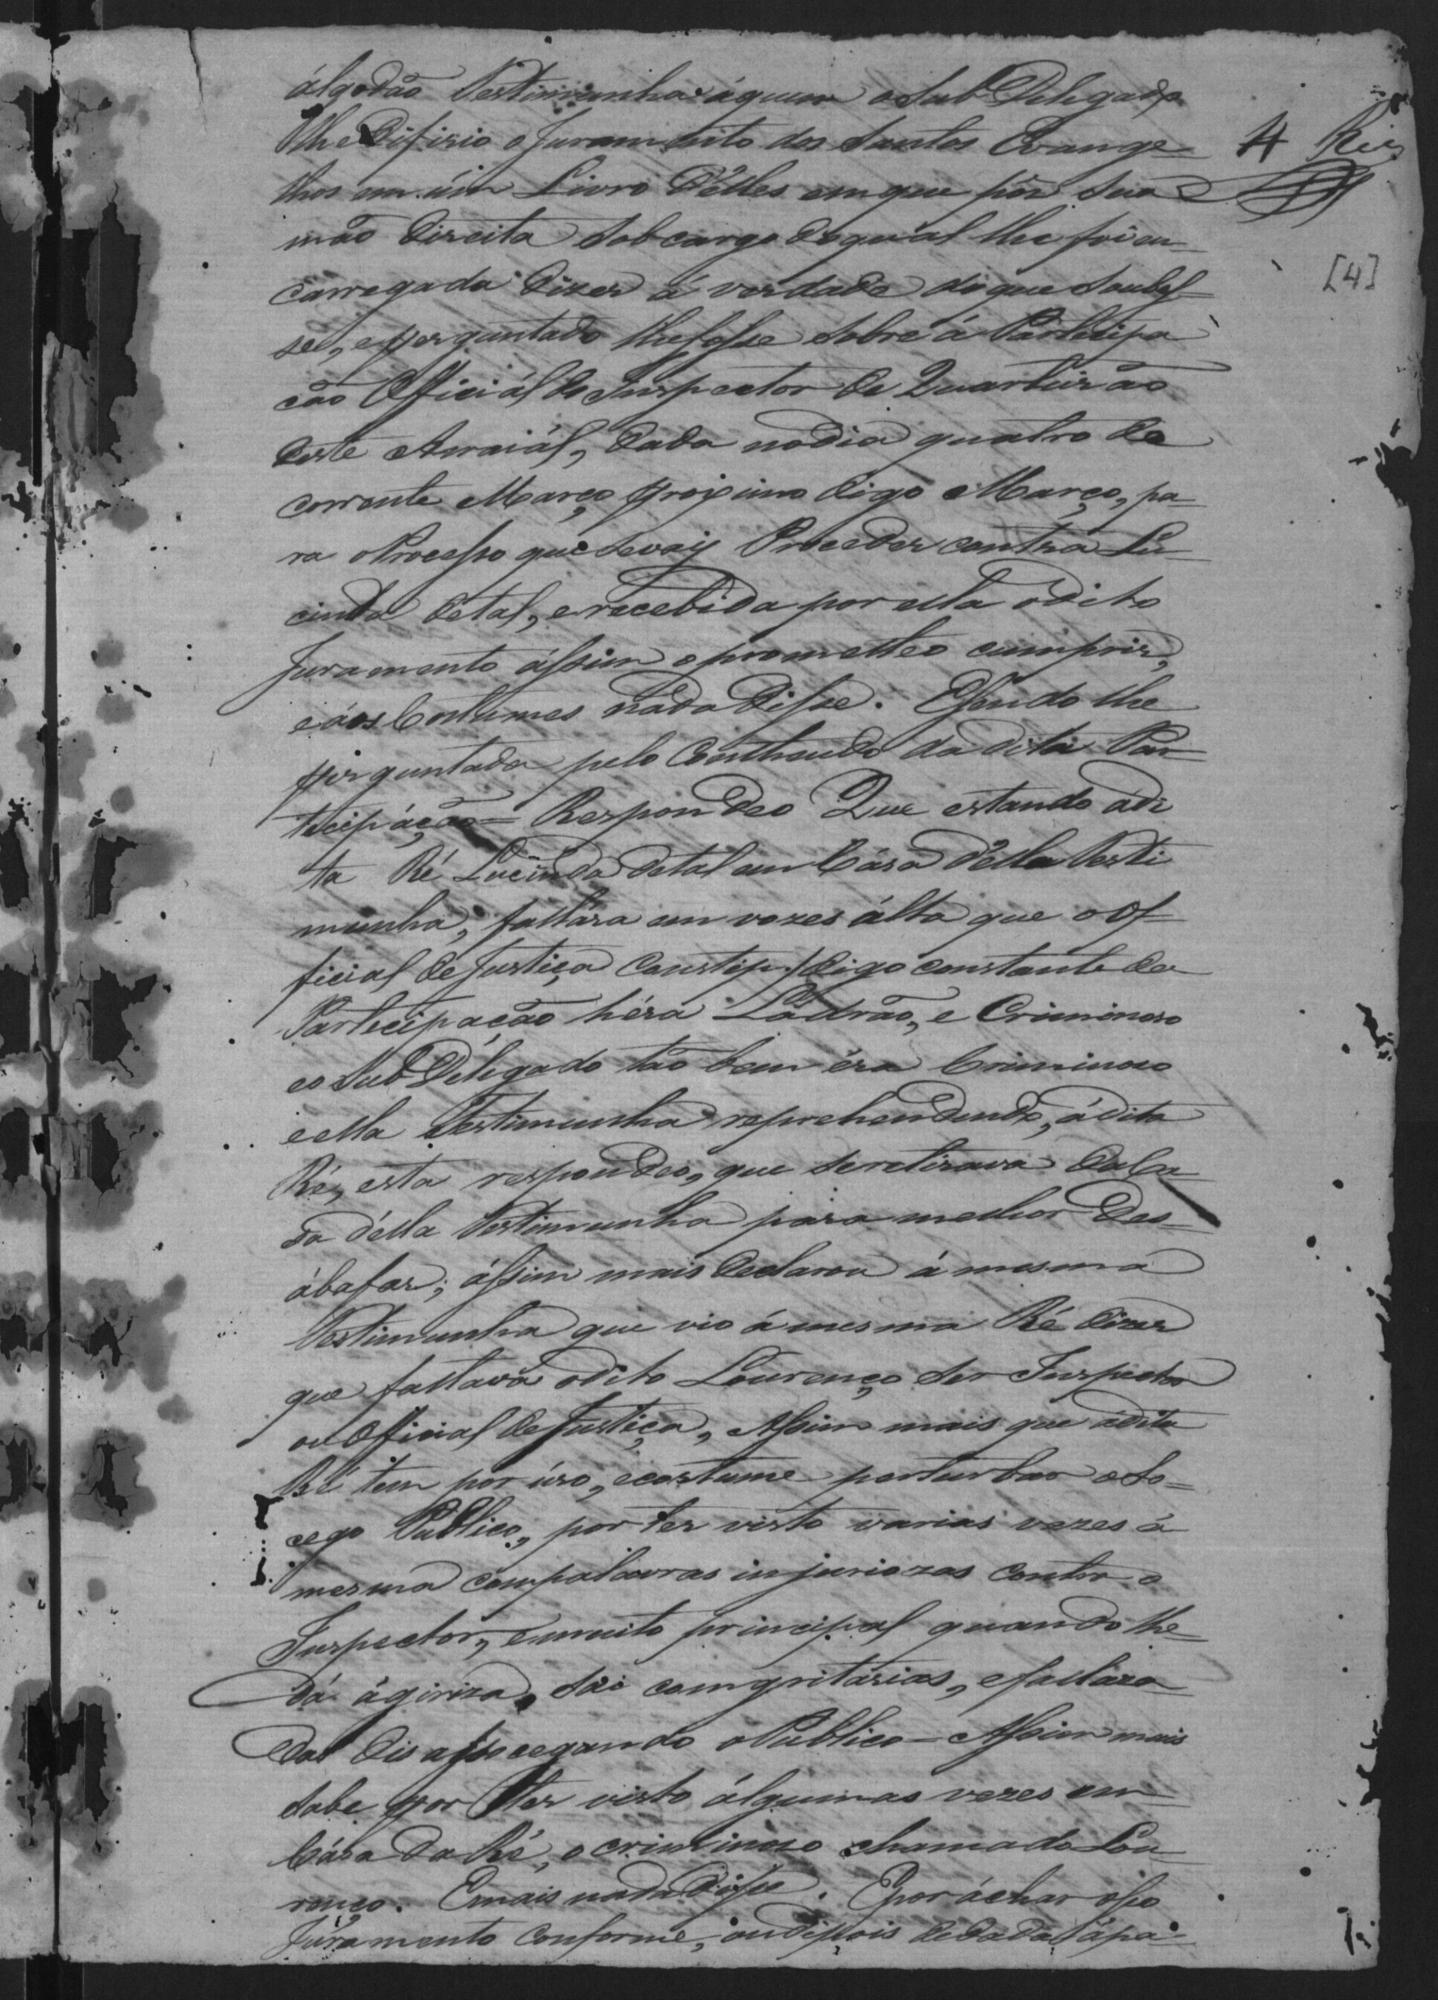 álgodão Testimunha áquem o Sub Delegado
lhe Difirio o Juramento dos Santos Evange-
lhos em úm Livro D'elles em que pôs Sua
mão Direita Sob cargo doqual lhe foi en-
carregada Dizer a verdade do que Soubes-
se, e perguntado lhe fosse Sobre á Participa
ção Officiál do Inspector de Quarteirão
deste Arraiál, Dada no dia quatro de
corrente Março proximo digo Março, pa-
ra o Procésso que Se vai Proceder contra Lu-
cinda de tal, e recebida por ella o dito
Juramento ássim o prometteo cumprir,
e áos Costumes náda Disse. E Sendo lhe
perguntada pelo Contheudo da dita Par-
tecipáção = Respondeo Que estando a di
ta Ré Lucinda de tal em Cása D'ella Testi
munha, fallára em vozes álta que o Of-
ficial de Justiça Constip. digo constante da
Partecipação héra Ládrão, e Criminoso
e o Sub Délegado tão bem éra Criminoso
e ella Testimunha reprehendendo, á dita
Ré, esta respondeo, que Se retirava da Ca-
sa délla Testimunha para melhor Des-
ábafar; ássim mais Declarou á mesma
Testimunha que vio á mesma Ré Dizer
que faltava o dito Lourenço Ser Inspector
ou Official de Justiça, Assim mais que á dita
Ré tem por úso, e costume perturbar o So-
cego Publico, por ter visto varias vezes á
mesma com palavras injuriozas contra o
Inspector, e muito principal quando lhe-
dá á giriza, Sai com gritárias, e fallaza
das Disassocegando o Publico = Assim mais
Sabe por Ter visto álgumas vezes em
Cása da Ré, o criminoso chamado Lou-
renço. E mais nada Disse. E por áchar o Seo
Juramento conforme,
4 Reis
[4]